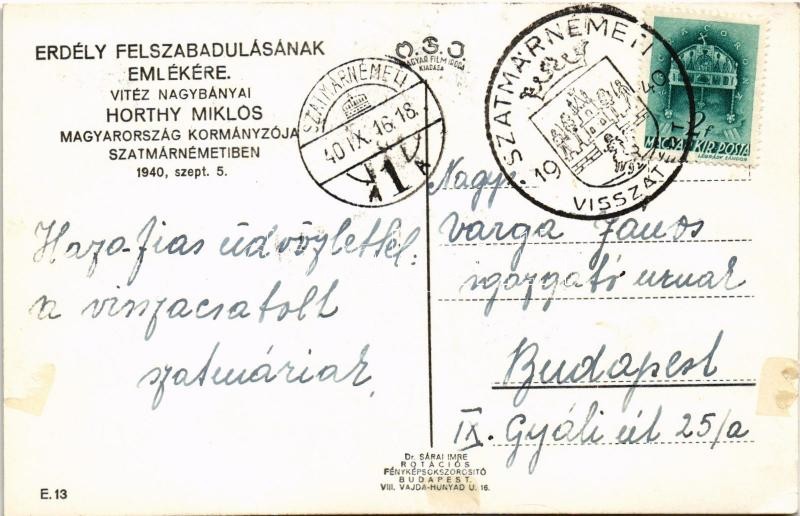 ERDÉLY FELSZABADULÁSÁNAK
EMLÉKÉRE.
VITÉZ NAGYBÁNYAI
HORTHY MIKLÓS
MAGYARORSZÁG KORMÁNYZÓJA
SZATMÁRNÉMETIBEN
1940, szept. 5.
MAGYAR FILM IRODA
KIADÁSA
SZATMÁRNÉMETI
40 IX. 16. 18
A 1 A
SZATMÁRNÉMETI
VISSZATÉRT
1940
2f
MAGY. KIR. POSTA
LÉGRÁDY SÁNDOR
Hazafias üdvözlettel:
a visszacsatolt
szatmáriak
Nagys.
Varga János
igazgató urnak
Budapest
IX. Gyáli út 25/a
Dr. SÁRAI IMRE
ROTÁCIÓS
FÉNYKÉPSOKSZOROSITÓ
BUDAPEST,
VIII. VAJDA-HUNYAD U. 16.
E.13